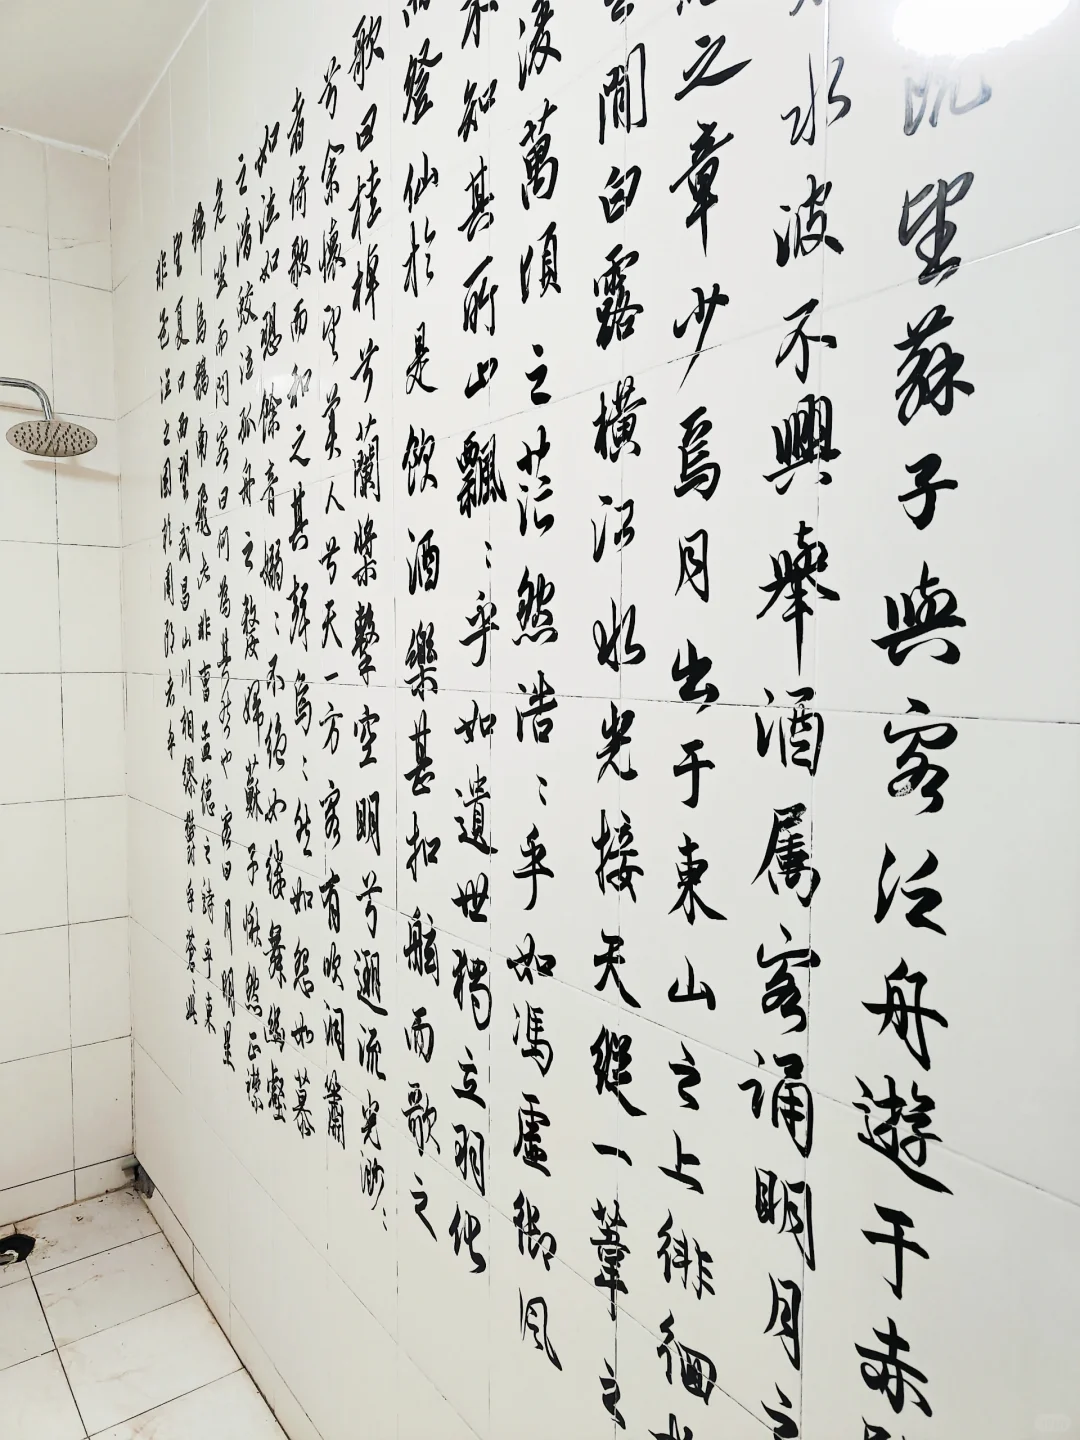 既望蘇子與客泛舟遊于赤
水波不興舉酒属客誦明月之
之章少焉月出于東山之上徘徊
間白露橫江水光接天縱一葦之
淩萬頃之茫然浩〻乎如馮虛御風
不知其所止飄〻乎如遺世獨立羽化
而登仙於是飲酒樂甚扣舷而歌之
歌曰桂棹兮蘭槳擊空明兮遡流光渺〻
兮余懷望美人兮天一方客有吹洞簫
者倚歌而和之其聲焉〻然如怨如慕
如泣如愬餘音嫋〻不絕如縷舞幽壑
之潛蛟泣孤舟之嫠婦蘇子愀然正襟
危坐而問客曰何為其然也客曰月明星
稀烏鵲南飛此非曹孟德之詩乎東
望夏口西望武昌山川相繆鬱乎蒼〻此
非之困於周郎者乎